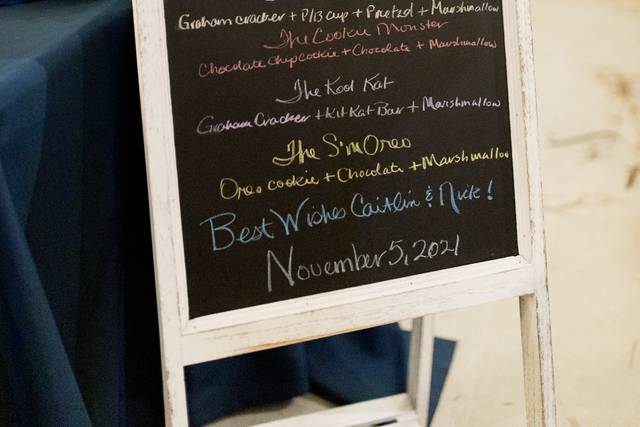 Graham cracker + P/B cup + Pretzel + Marshmallow
The Cookie Monster
Chocolate Chip cookie + Chocolate + Marshmallow
The Kool Kat
Graham Cracker + Kit Kat Bar + Marshmallow
The S'mOreo
Oreo cookie + Chocolate + Marshmallow
Best Wishes Caitlin & Nick!
November 5, 2021